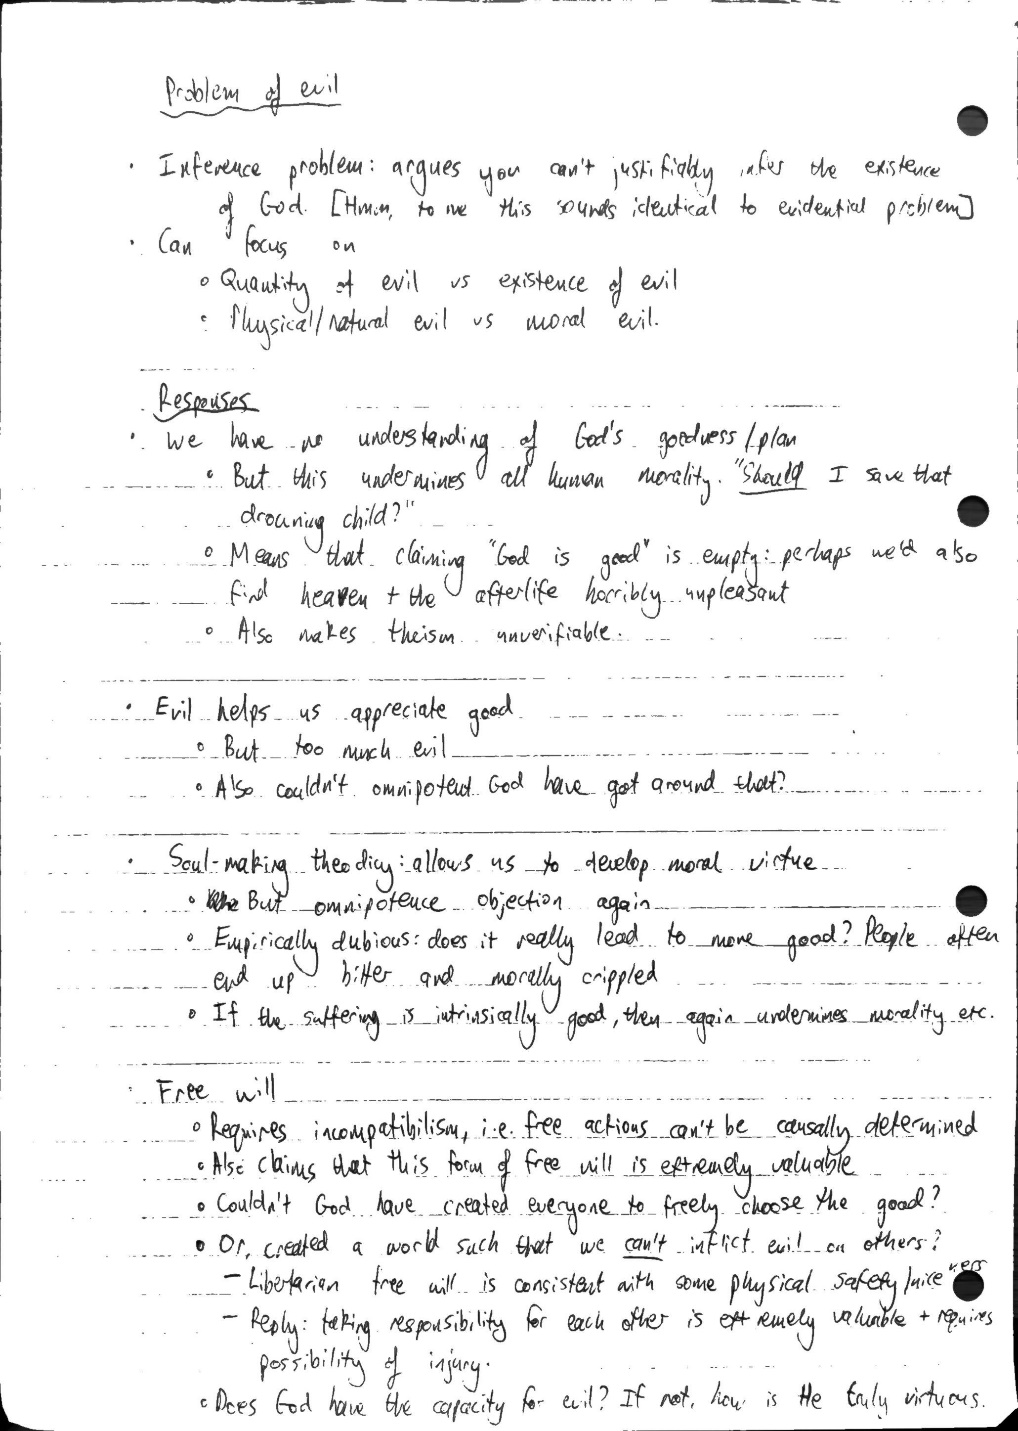 Problem of evil
· Inference problem: argues you can't justifiably infer the existence
of God. [Hmm, to me this sounds identical to evidential problem]
· Can focus on
o Quantity of evil vs existence of evil
o Physical/natural evil vs moral evil.
Responses
· We have no understanding of God's goodness/plan
o But this undermines all human morality. "Should I save that
drowning child?"
o Means that claiming "God is good" is empty: perhaps we'd also
find heaven + the afterlife horribly unpleasant
o Also makes theism unverifiable.
· Evil helps us appreciate good
o But too much evil
o Also couldn't omnipotent God have got around that?
· Soul-making theodicy: allows us to develop moral virtue
o But omnipotence objection again
o Empirically dubious: does it really lead to more good? People often
end up bitter and morally crippled
o If the suffering is intrinsically good, then again undermines morality etc.
· Free will
o Requires incompatibilism, i.e. free actions can't be causally determined
o Also claims that this form of free will is extremely valuable
o Couldn't God have created everyone to freely choose the good?
o Or, created a world such that we can't inflict evil on others?
– Libertarian free will is consistent with some physical safety/niceness
– Reply: taking responsibility for each other is extremely valuable + requires
possibility of injury.
o Does God have the capacity for evil? If not, how is He truly virtuous.